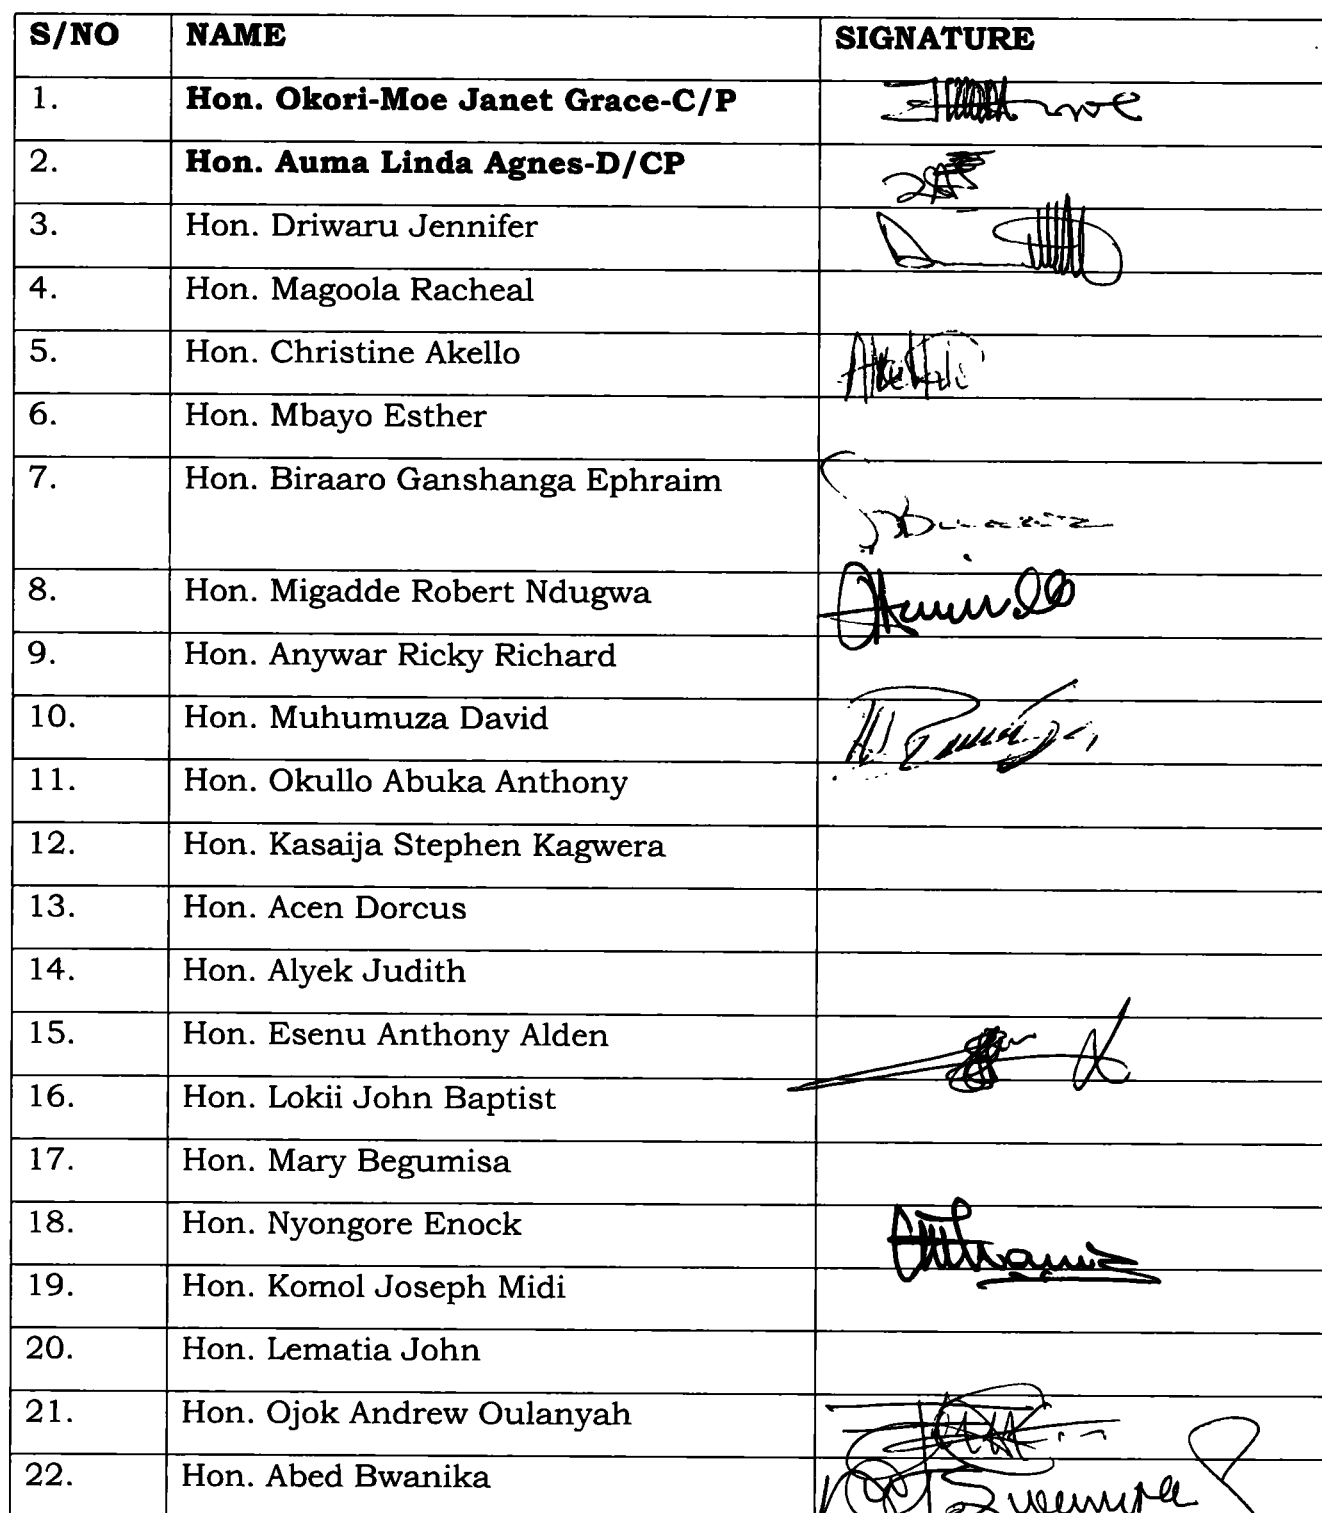 S/NO NAME SIGNATURE
1. Hon. Okori-Moe Janet Grace-C/P
2. Hon. Auma Linda Agnes-D/CP
3. Hon. Driwaru Jennifer
4. Hon. Magoola Racheal
5. Hon. Christine Akello
6. Hon. Mbayo Esther
7. Hon. Biraaro Ganshanga Ephraim
8. Hon. Migadde Robert Ndugwa
9. Hon. Anywar Ricky Richard
10. Hon. Muhumuza David
11. Hon. Okullo Abuka Anthony
12. Hon. Kasaija Stephen Kagwera
13. Hon. Acen Dorcus
14. Hon. Alyek Judith
15. Hon. Esenu Anthony Alden
16. Hon. Lokii John Baptist
17. Hon. Mary Begumisa
18. Hon. Nyongore Enock
19. Hon. Komol Joseph Midi
20. Hon. Lematia John
21. Hon. Ojok Andrew Oulanyah
22. Hon. Abed Bwanika